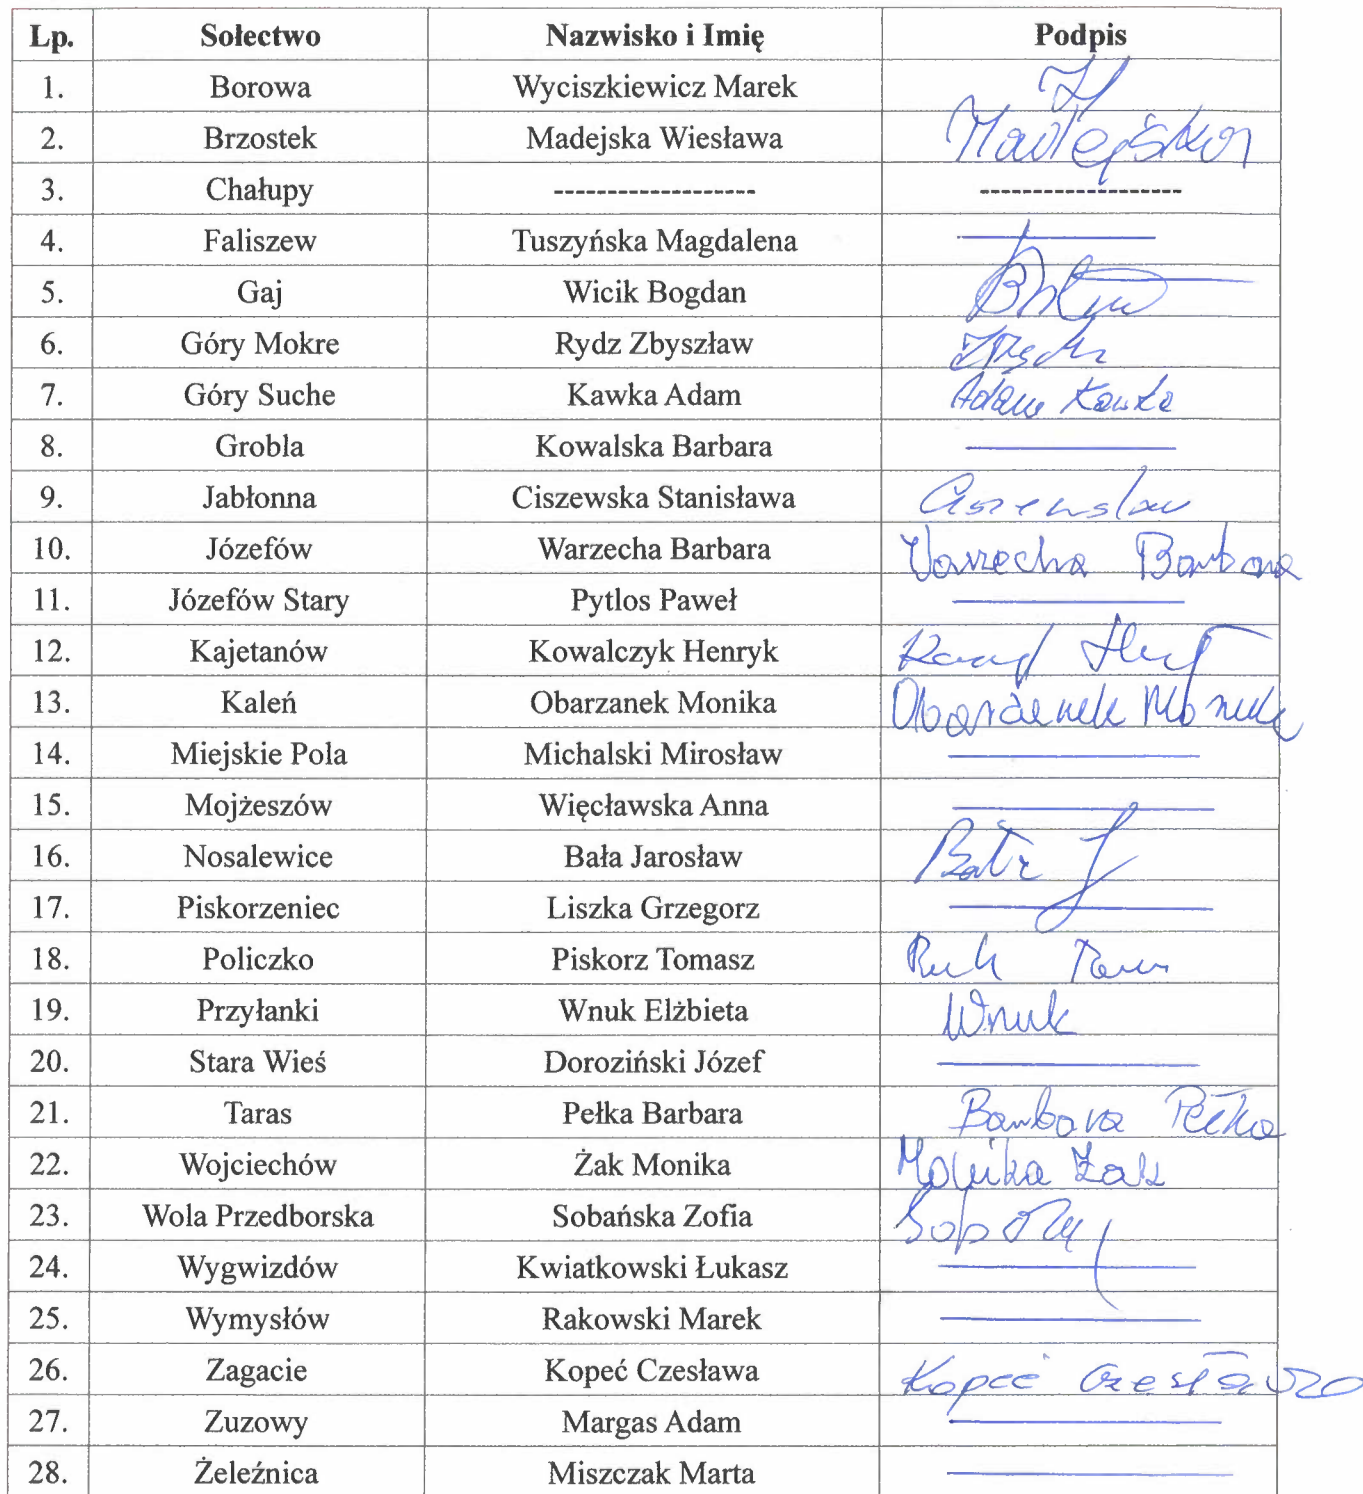 Lp. Sołectwo Nazwisko i Imię Podpis
1. Borowa Wyciszkiewicz Marek
2. Brzostek Madejska Wiesława Madejska
3. Chałupy ------------------- -------------------
4. Faliszew Tuszyńska Magdalena
5. Gaj Wicik Bogdan
6. Góry Mokre Rydz Zbyszław
7. Góry Suche Kawka Adam Adam Kawka
8. Grobla Kowalska Barbara
9. Jabłonna Ciszewska Stanisława Ciszewska
10. Józefów Warzecha Barbara Warzecha Barbara
11. Józefów Stary Pytlos Paweł
12. Kajetanów Kowalczyk Henryk
13. Kaleń Obarzanek Monika Obarzanek Monika
14. Miejskie Pola Michalski Mirosław
15. Mojżeszów Więcławska Anna
16. Nosalewice Bała Jarosław Bała J
17. Piskorzeniec Liszka Grzegorz
18. Policzko Piskorz Tomasz
19. Przyłanki Wnuk Elżbieta Wnuk
20. Stara Wieś Doroziński Józef
21. Taras Pełka Barbara Barbara Pełka
22. Wojciechów Żak Monika Monika Żak
23. Wola Przedborska Sobańska Zofia
24. Wygwizdów Kwiatkowski Łukasz
25. Wymysłów Rakowski Marek
26. Zagacie Kopeć Czesława Kopeć Czesława
27. Zuzowy Margas Adam
28. Żeleźnica Miszczak Marta